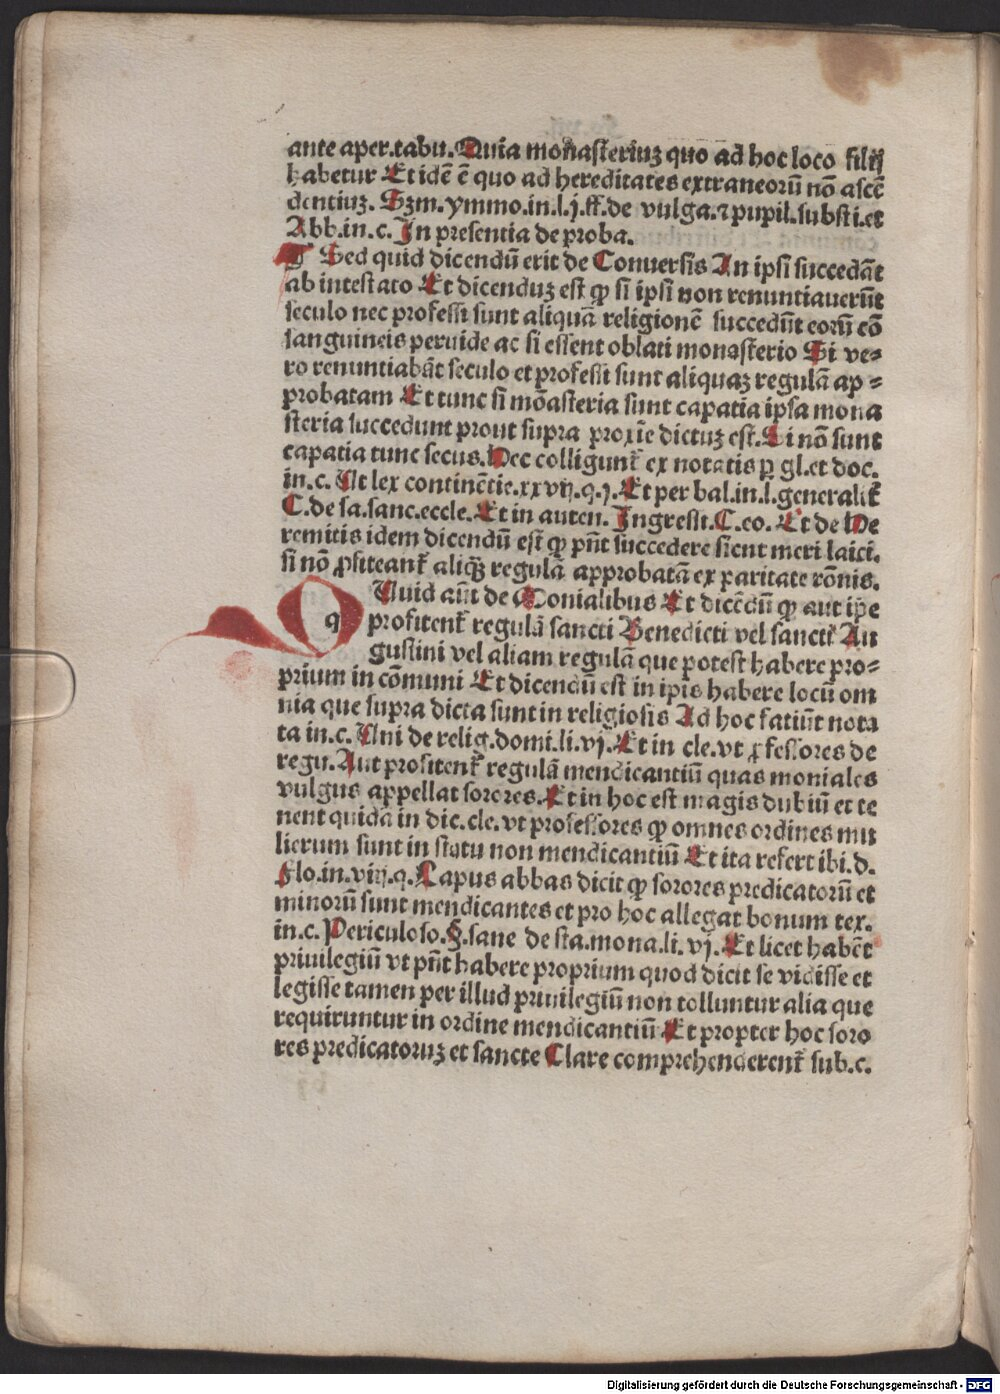 ante aper.tabu.Quia monasteriuz quo ad hoc loco filij
habetur Et idē ē quo ad hereditates extraneorū nō ascē
dentiuz. Szm.ymmo.in.l.j.ff.de vulga.⁊ pupil.substi.et
Abb.in.c.In presentia de proba.
¶ Sed quid dicendū erit de Conuersis An ipsi succedāt
ab intestato Et dicenduz est ꝙ si ipsi non renuntiauerūt
seculo nec professi sunt aliquā religionē succedūt eorū cō
sanguineis peruide ac si essent oblati monasterio Si ve⸗
ro renuntiabāt seculo et professi sunt aliquaz regulā ap⸗
probatam Et tunc si mōasteria sunt capatia ipsa mona
steria succedunt prout supra proxīe dictuz est.Si nō sunt
capatia tunc secus.Hec colligunt᷑ ex notatis ꝑ gl.et doc.
in.c.Ut lex continētie.xxvij.q.j.Et per bal.in.l.generalit᷑
C.de sa.sanc.eccle.Et in auten.Ingressi.C.eo.Et de He
remitis idem dicendū est ꝙ pn̄t succedere sicut meri laici.
si nō ꝓfiteant᷑ aliq̄ꝫ regulā approbatā ex paritate rōnis.
Quid aūt de Monialibus Et dicēdū ꝙ aut ip̄e
q profitent᷑ regulā sancti Benedicti vel sancti Au
gustini vel aliam regulā que potest habere pro⸗
prium in cōmuni Et dicendū est in ip̄is habere locū om
nia que supra dicta sunt in religiosis Ad hoc fatiūt nota
ta in.c.Uni de relig.domi.li.vj.Et in cle.vt ꝓfessores de
regu.Aut profitent᷑ regulā mendicantiū quas moniales
vulgus appellat sorores.Et in hoc est magis dubiū et te
nent quidā in dic.cle.vt professores ꝙ omnes ordines mu
lierum sunt in statu non mendicantiū Et ita refert ibi.d.
Flo.in.viij.q.Lapus abbas dicit ꝙ sorores predicatorū et
minorū sunt mendicantes et pro hoc allegat bonum tex.
in.c.Periculoso.§.sane de sta.mona.li.vj.Et licet habēt
priuilegiū vt pn̄t habere proprium quod dicit se vidisse et
legisse tamen per illud priuilegiū non tolluntur alia que
requiruntur in ordine mendicantiū Et propter hoc soro
res predicatoruz et sancte Clare comprehenderent᷑ sub.c.
Digitalisierung gefördert durch die Deutsche Forschungsgemeinschaft - DFG